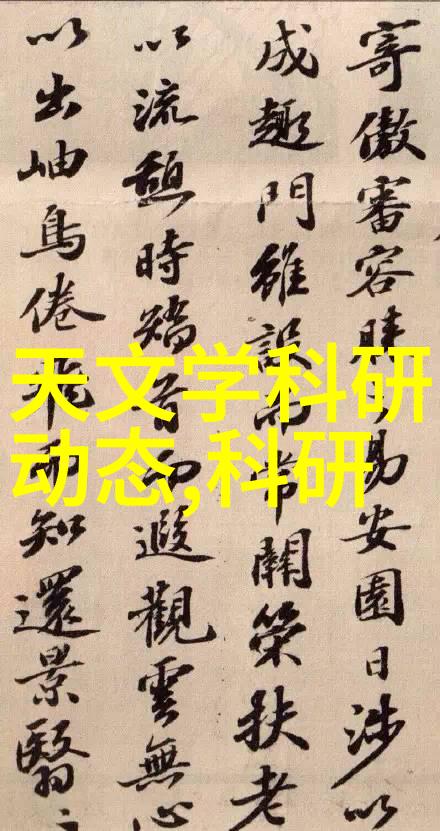 寄傲審容膝易安園日涉以
成趣門雖設而常關策扶老
以流憩時矯首而遐觀雲無心
以出岫鳥倦飛而知還景翳
天文学科研
动态,科研